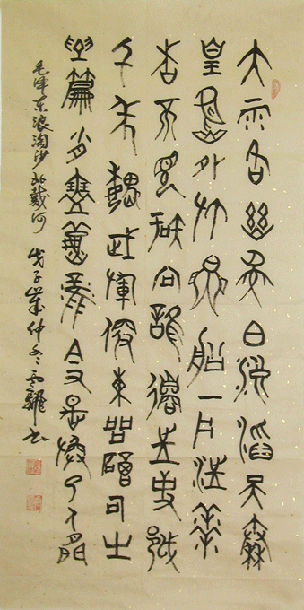 大雨落幽燕白浪滔天秦
皇島外打魚船一片汪洋
都不見知向誰邊往事越
千年魏武揮鞭東臨碣石有
遺篇蕭瑟秋風今又是換了人間
毛澤東浪淘沙北戴河 戊子歲仲冬 書